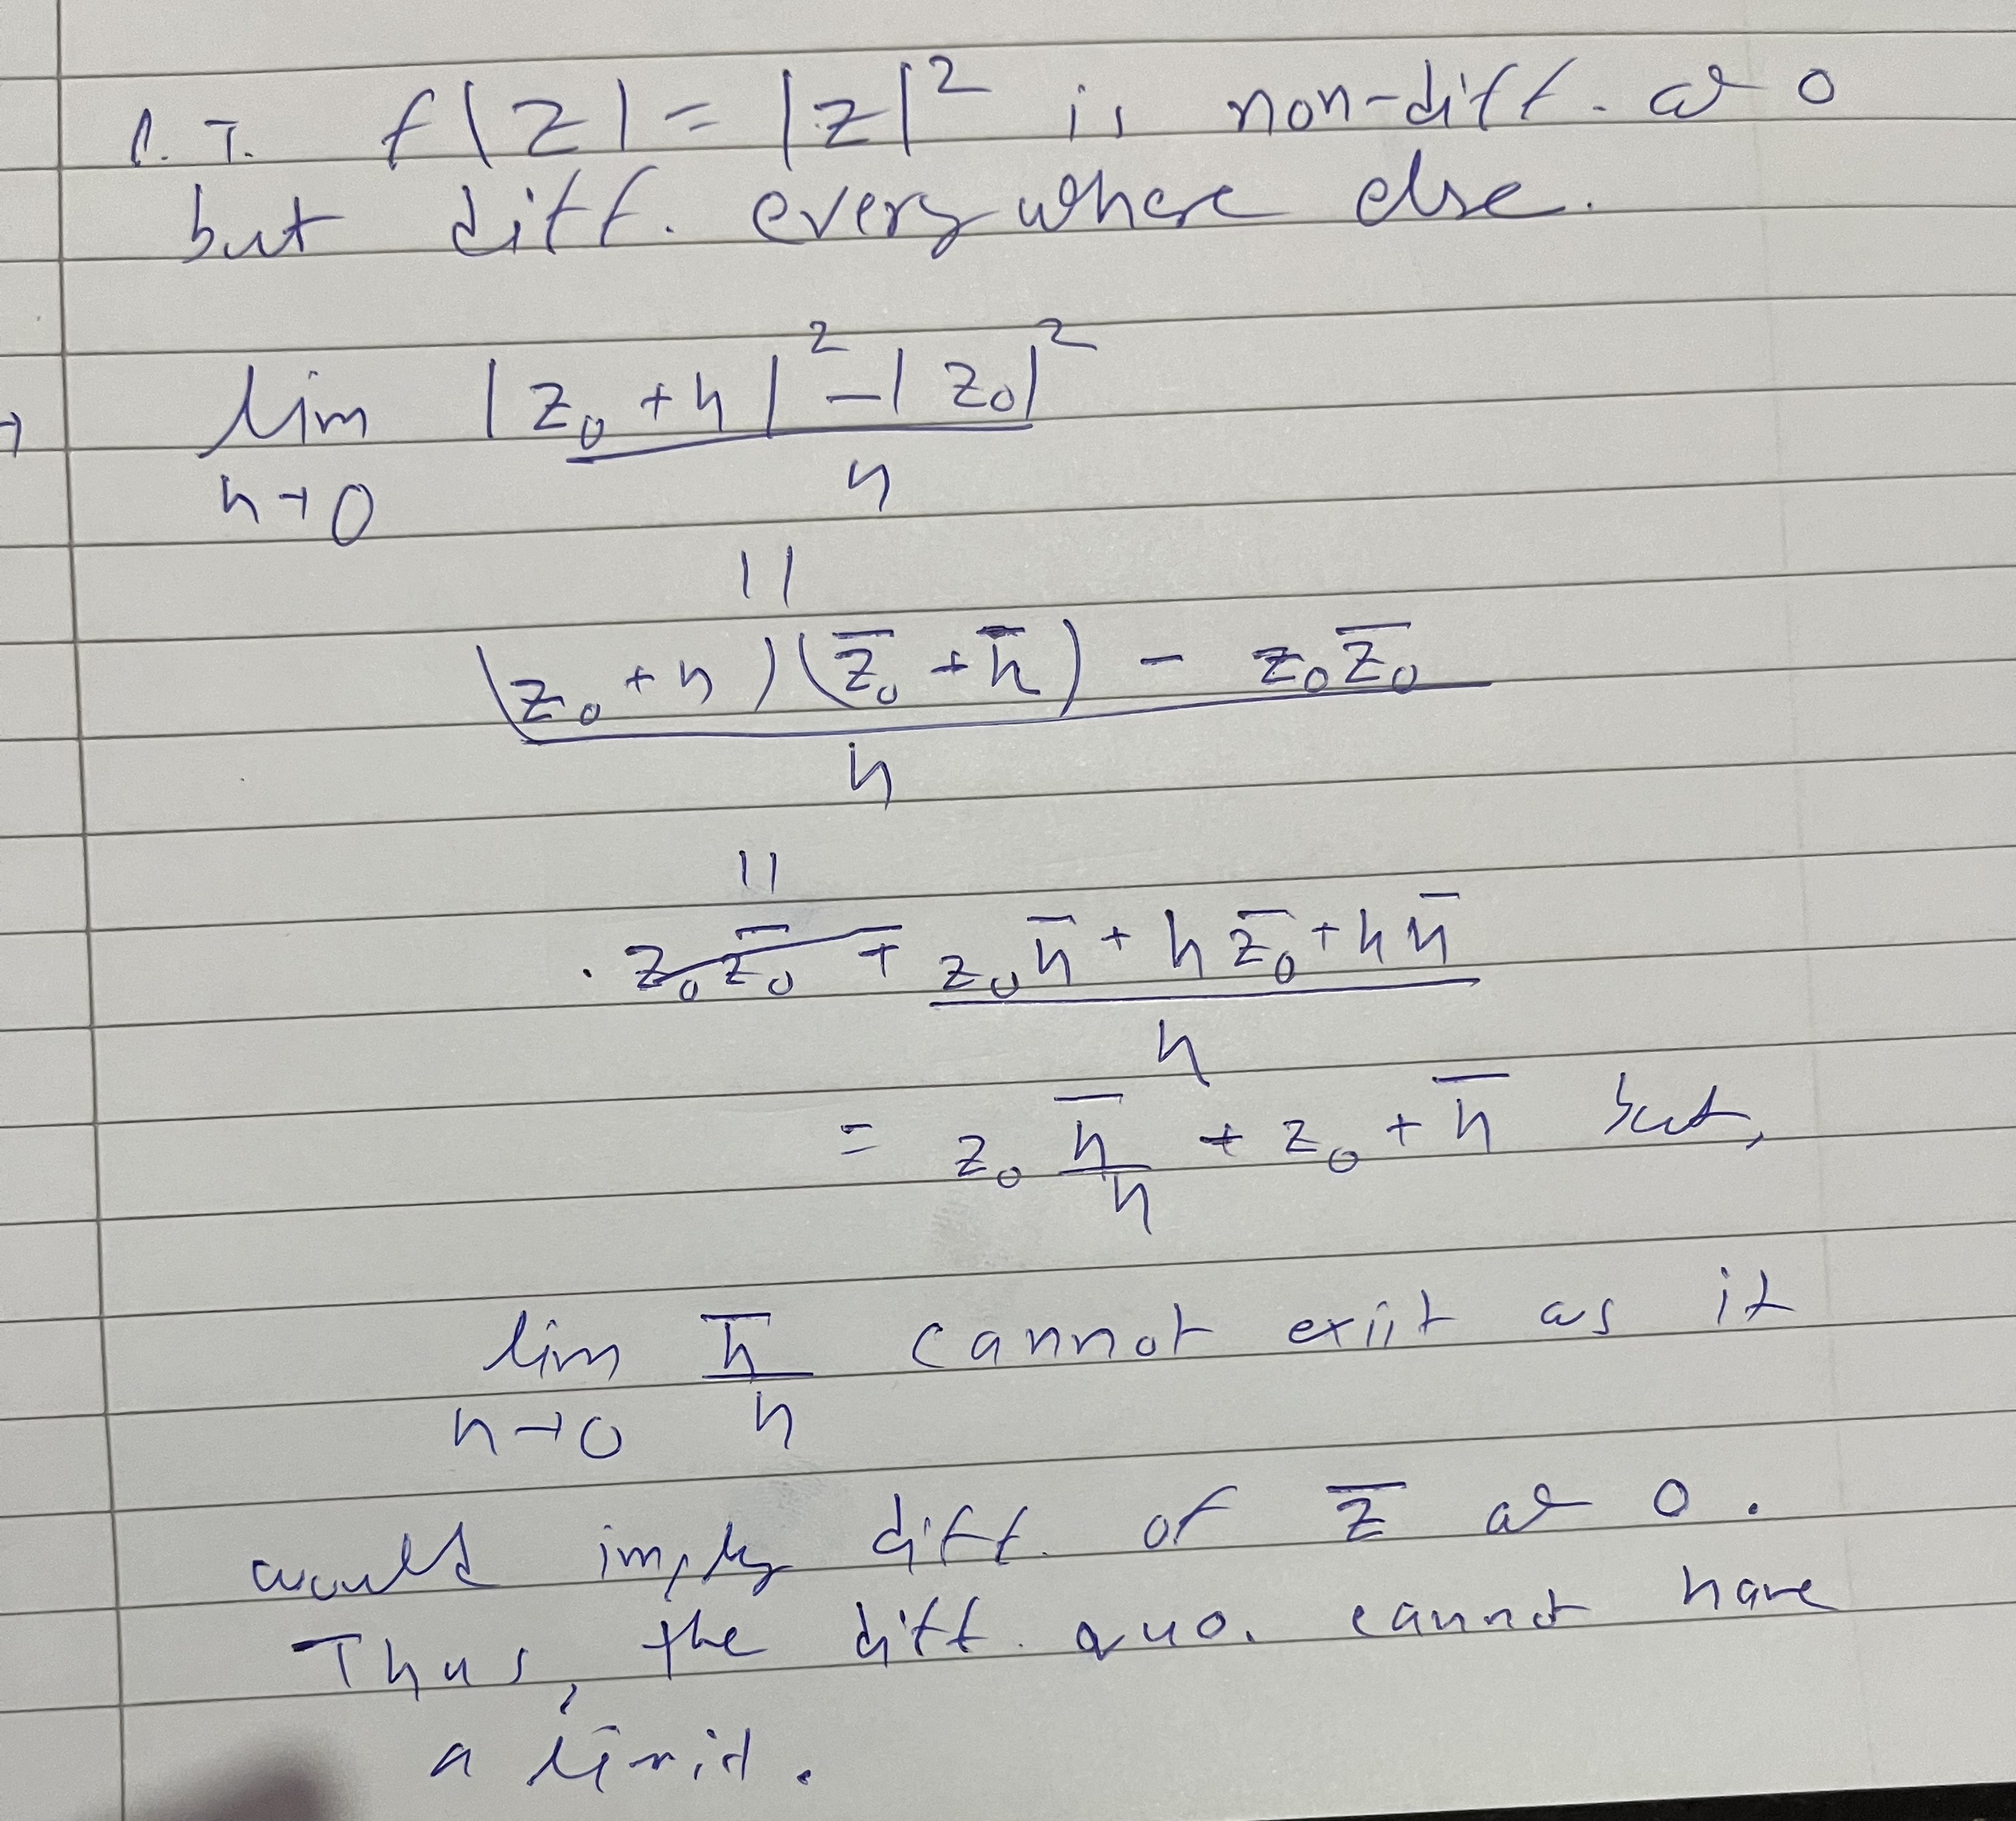 P.T. f(z) = |z|² is non-diff. at 0
but diff. everywhere else.
→ lim |z₀ + h|² - |z₀|²
h→0 h
||
(z₀ + h)(z̅₀ + h̅) - z₀z̅₀
h
||
z₀z̅₀ + z₀h̅ + hz̅₀ + hh̅
h
= z₀ h̅/h + z₀ + h̅ but,
lim h̅/h cannot exist as it
h→0
would imply diff. of z̅ at 0.
Thus, the diff. quo. cannot have
a limit.